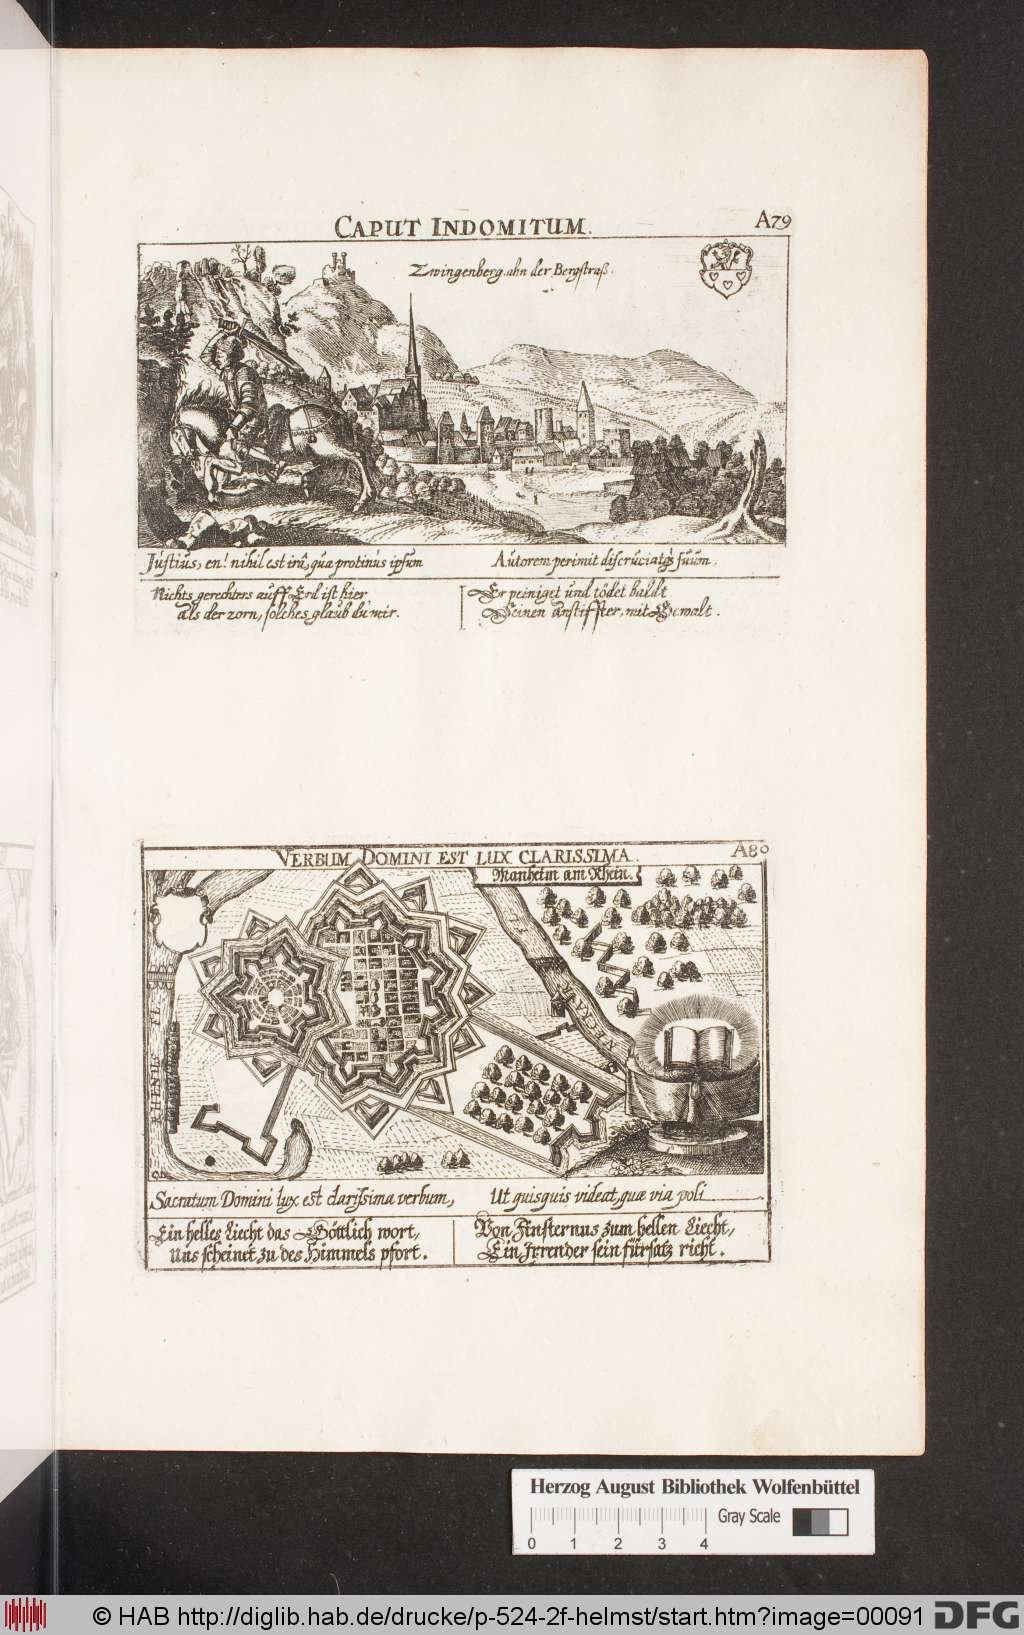 CAPUT INDOMITUM.
A79
Zwingenberg ahn der Bergstraß.
Justius, en! nihil est irâ, quæ protinus ipsum
Autorem perimit discruciatq; suum.
Nichts gerechters auff Erd ist hier
als der zorn, solches glaub du mir.
Er peiniget und tödet baldt
Seinen anstiffter, mit Gewalt.
VERBUM DOMINI EST LUX CLARISSIMA.
A80
Manheim am Rhein.
RHENUS FL
Sacratum Domini lux est clarissima verbum,
Ut quisquis videat, quæ via poli
Ein helles Liecht das Göttlich wort,
Uns scheinet zu des Himmels pfort.
Von Finsternus zum hellen Liecht,
Ein Irrender sein fürsatz richt.
Herzog August Bibliothek Wolfenbüttel
Gray Scale
0 1 2 3 4
© HAB http://diglib.hab.de/drucke/p-524-2f-helmst/start.htm?image=00091
DFG